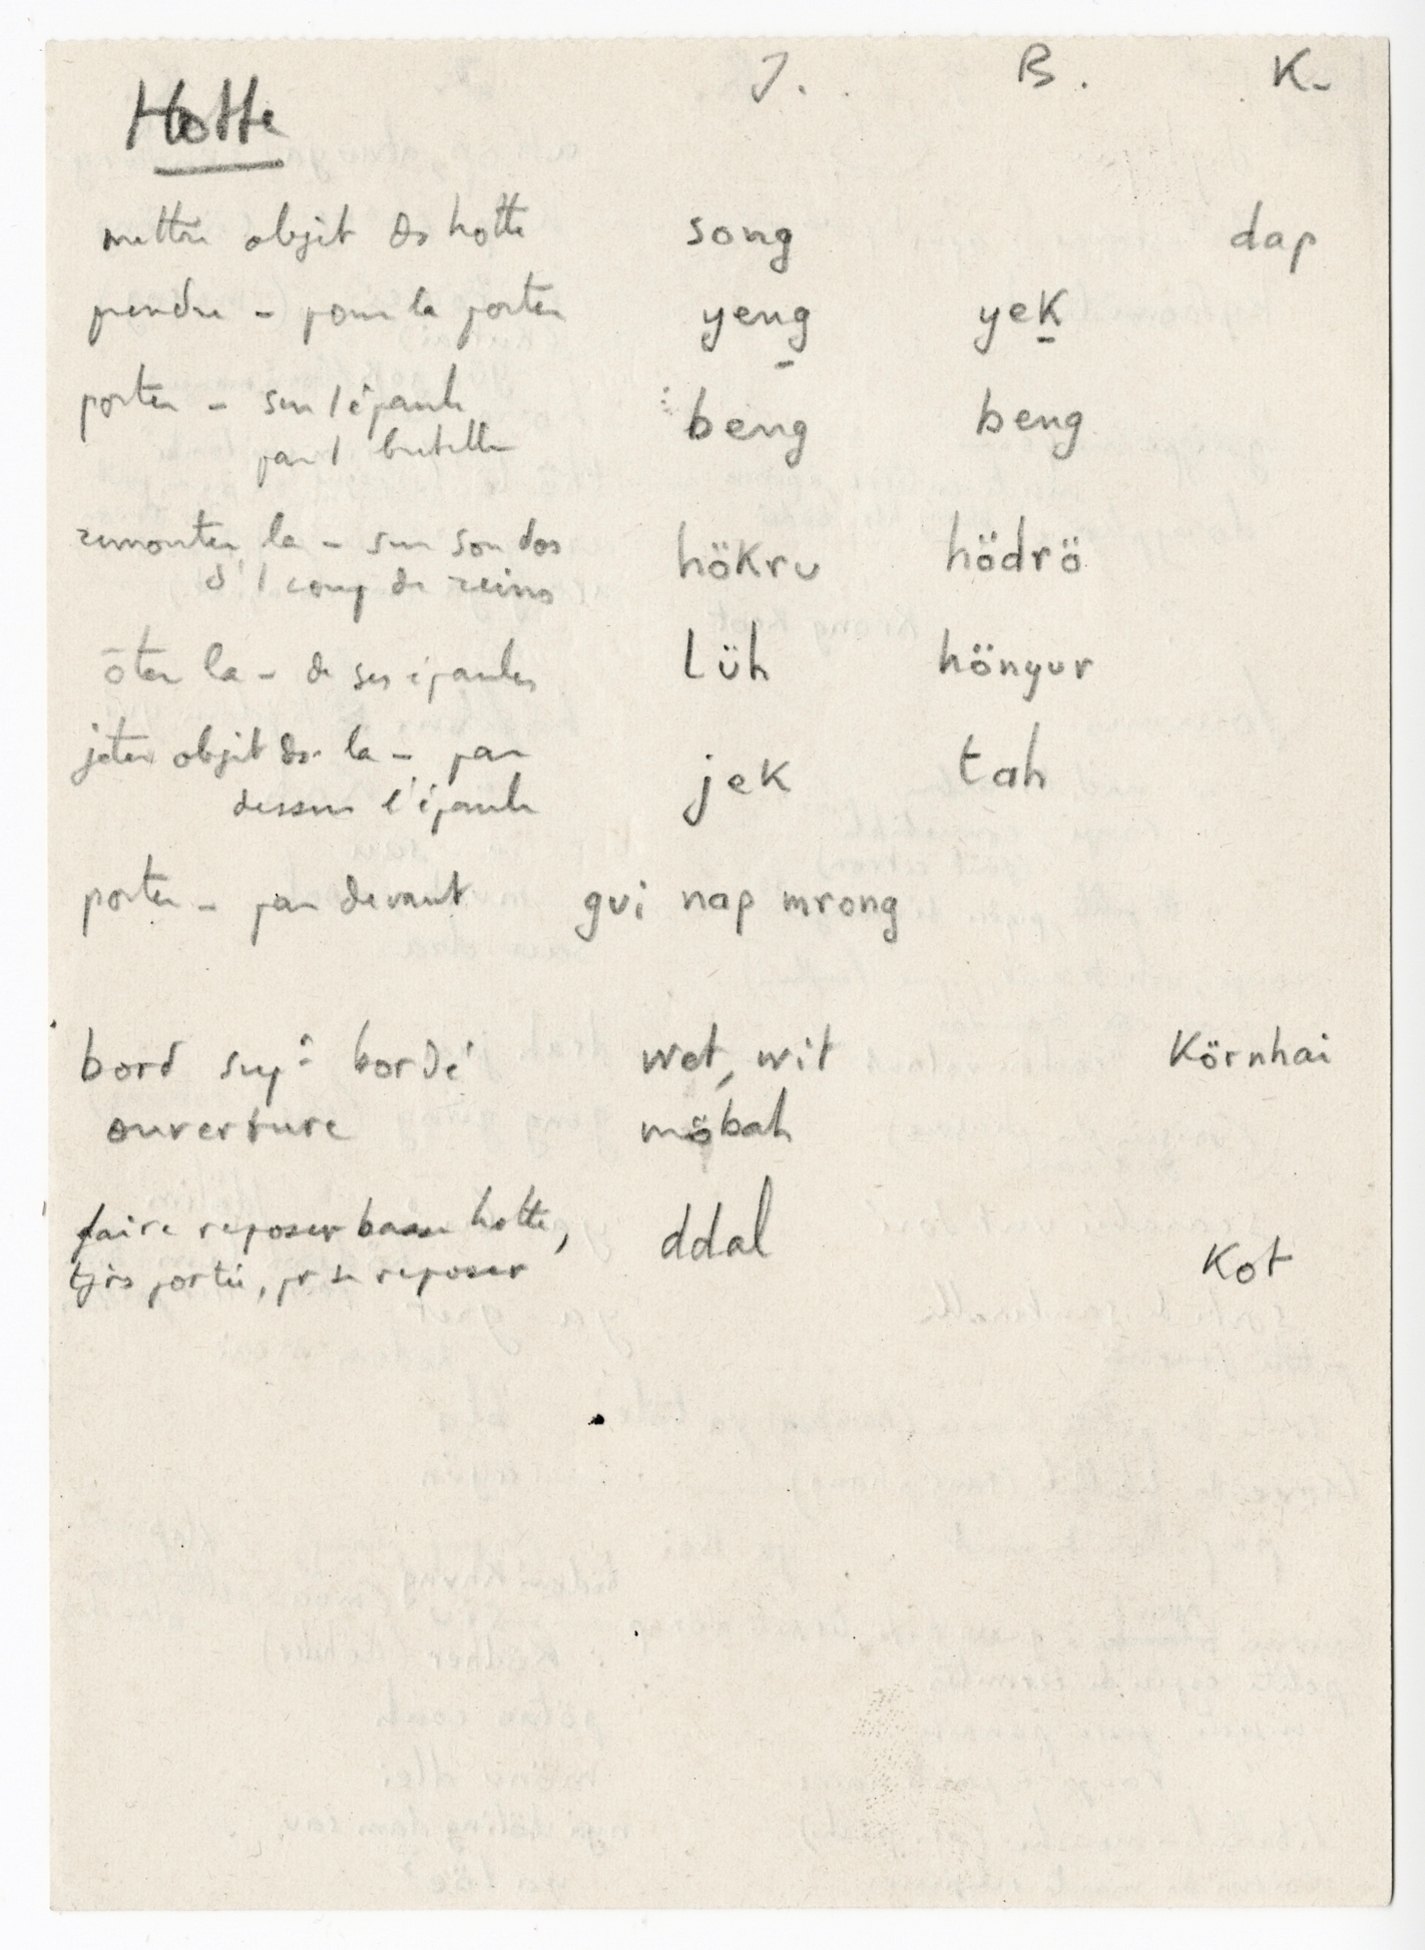 J. B. K.
Hotte
mettre objet ds hotte song dap
prendre - pour la porter yeng yek
porter - sur l'épaule beng beng
par 1 bretelle
remonter la - sur son dos hökru hödrö
d'1 coup de reins
ôter la - de ses épaules lüh hönyur
jeter objet ds la - par jek tah
dessus l'épaule
porter - par devant gui nap mrong
bord supr bordé wet, wit Körnhai
ouverture möbah
faire reposer base hotte, ddal Kot
tjrs portée, pr se reposer